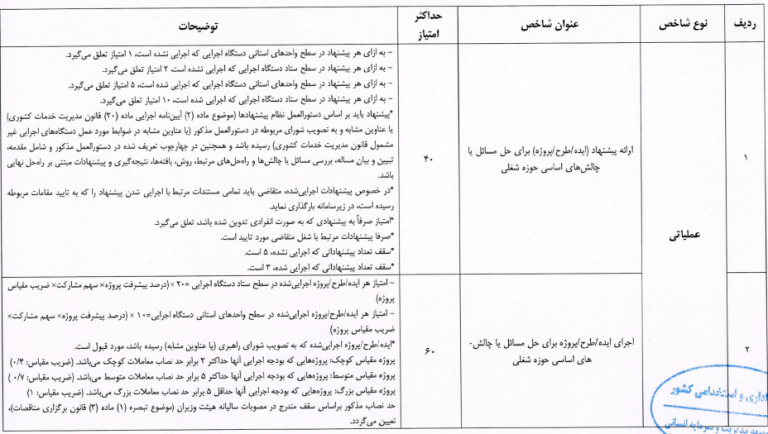 ردیف
نوع شاخص
عنوان شاخص
حداکثر
امتیاز
توضیحات
۱
عملیاتی
ارائه پیشنهاد (ایده/طرح/پروژه) برای حل مسائل یا
چالش‌های اساسی حوزه شغلی
۴۰
– به ازای هر پیشنهاد در سطح واحدهای استانی دستگاه اجرایی که اجرایی نشده است، ۱ امتیاز تعلق می‌گیرد.
– به ازای هر پیشنهاد در سطح ستاد دستگاه اجرایی که اجرایی نشده است، ۲ امتیاز تعلق می‌گیرد.
– به ازای هر پیشنهاد در سطح واحدهای استانی دستگاه اجرایی که اجرایی شده است، ۵ امتیاز تعلق می‌گیرد.
– به ازای هر پیشنهاد در سطح ستاد دستگاه اجرایی که اجرایی شده است، ۱۰ امتیاز تعلق می‌گیرد.
*پیشنهاد باید بر اساس دستورالعمل نظام پیشنهادها (موضوع ماده (۲) آیین‌نامه اجرایی ماده (۲۰) قانون مدیریت خدمات کشوری)
یا عناوین مشابه و به تصویب شورای مربوطه در دستورالعمل مذکور (یا عناوین مشابه در ضوابط مورد عمل دستگاه‌های اجرایی غیر
مشمول قانون مدیریت خدمات کشوری) رسیده باشد و همچنین در چهارچوب تعریف شده در دستورالعمل مذکور و شامل مقدمه،
تبیین و بیان مساله، بررسی مسائل یا چالش‌ها و راه‌حل‌های مرتبط، روش، یافته‌ها، نتیجه‌گیری و پیشنهادات مبتنی بر راه‌حل نهایی
باشد.
*در خصوص پیشنهادات اجرایی‌شده، متقاضی باید تمامی مستندات مرتبط با اجرایی شدن پیشنهاد را که به تایید مقامات مربوطه
رسیده است، در زیرسامانه بارگذاری نماید.
*امتیاز صرفاً به پیشنهادی که به صورت انفرادی تدوین شده باشد، تعلق می‌گیرد.
*صرفا پیشنهادات مرتبط با شغل متقاضی مورد تایید است.
*سقف تعداد پیشنهاداتی که اجرایی نشده، ۵ است.
*سقف تعداد پیشنهاداتی که اجرایی شده، ۳ است.
۲
اجرای ایده/طرح/پروژه برای حل مسائل یا چالش-
های اساسی حوزه شغلی
۶۰
– امتیاز هر ایده/طرح/پروژه اجرایی‌شده در سطح ستاد دستگاه اجرایی =۲۰ × (درصد پیشرفت پروژه× سهم مشارکت× ضریب مقیاس
پروژه)
– امتیاز هر ایده/طرح/پروژه اجرایی‌شده در سطح واحدهای استانی دستگاه اجرایی=۱۰ × (درصد پیشرفت پروژه× سهم مشارکت×
ضریب مقیاس پروژه)
*ایده/طرح/پروژه اجرایی‌شده که به تصویب شورای راهبری (یا عناوین مشابه) رسیده باشد، مورد قبول است.
پروژه مقیاس کوچک: پروژه‌هایی که بودجه اجرایی آنها حداکثر ۲ برابر حد نصاب معاملات کوچک می‌باشد. (ضریب مقیاس: ۰/۴)
پروژه مقیاس متوسط: پروژه‌هایی که بودجه اجرایی آنها حداکثر ۵ برابر حد نصاب معاملات متوسط می‌باشد. (ضریب مقیاس: ۰/۷)
پروژه مقیاس بزرگ: پروژه‌هایی که بودجه اجرایی آنها حداقل ۵ برابر حد نصاب معاملات بزرگ می‌باشد. (ضریب مقیاس: ۱)
حد نصاب مذکور براساس سقف مندرج در مصوبات سالیانه هیئت وزیران (موضوع تبصره (۱) ماده (۳) قانون برگزاری مناقصات)،
تعیین می‌گردد.
اداری و استخدامی کشور
مدیریت و سرمایه انسانی